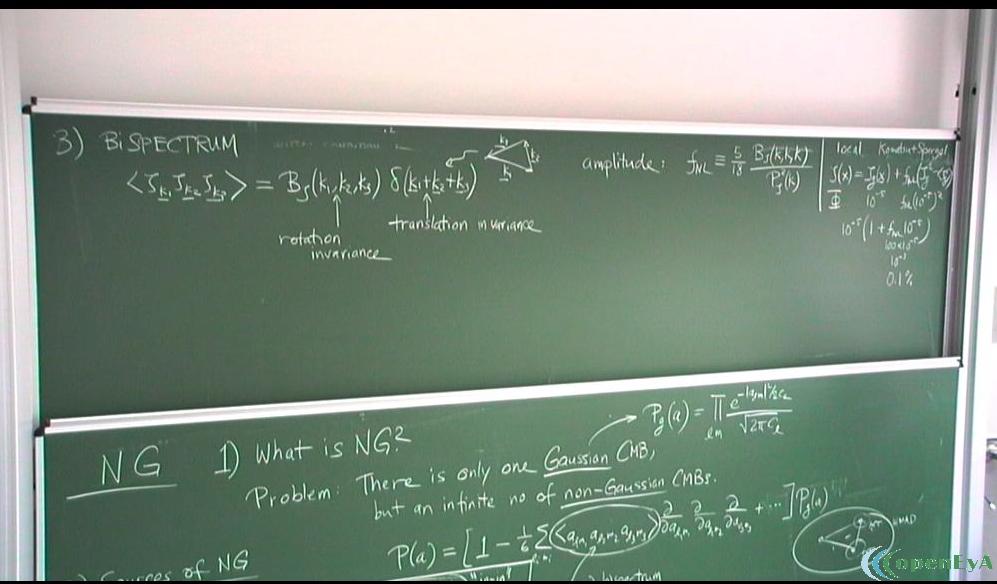 3) BiSPECTRUM
<ζ_k₁ ζ_k₂ ζ_k₃> = B_ζ(k₁,k₂,k₃) δ(k₁+k₂+k₃)
rotation invariance
translation invariance
amplitude: f_NL ≡ 5/18 B_ζ(k,k,k) / P_ζ²(k)
local Komatsu+Spergel
10⁻⁵ f_NL(10⁻⁵)²
Φ
10⁻⁵(1 + f_NL 10⁻⁵)
100×10⁻⁵
10⁻³
0.1%
NG
1) What is NG?
P_g(a) = ∏_lm e^(-|a_lm|²/2C_l) / √2πC_l
Problem: There is only one Gaussian CMB,
but an infinite no of non-Gaussian CMBs.
P(a) = [1 - 1/6 Σ <a_l₁m₁ a_l₂m₂ a_l₃m₃> ∂/∂a_l₁m₁ ∂/∂a_l₂m₂ ∂/∂a_l₃m₃ + ...] P_g(a)
WMAP
of NG
openEyA